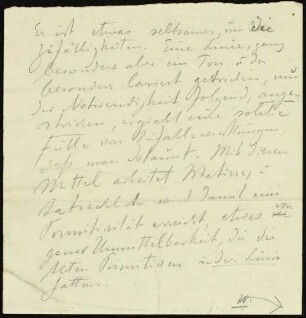 Es ist etwas seltsames, um die
Zufälligkeiten. Eine Linie, ganz
besonders aber ein Ton u der
besonders laviert getrieben, und
der Notwendigkeit folgend, ange-
strichen, ergiebt eine solche
Fülle von Zufallswirkungen,
daß man staunt. Mit diesem
Mittel arbeitet Matisse u
und damit eine
Primitivität erreicht etwas von
jener Unmittelbarkeit, die die
alten Primitiven in der Linie
hatten.